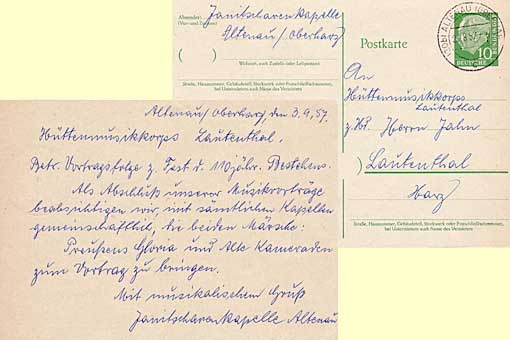 Absender:
Janitscharenkapelle
Altenau/Oberharz
(Vor- und Zuname)
Wohnort, auch Zustell- oder Leitpostamt
Straße, Hausnummer, Gebäudeteil, Stockwerk oder Postschließfachnummer,
bei Untermietern auch Name des Vermieters
Postkarte
DEUTSCHE
BUNDESPOST
10
An
Hüttenmusikkorps
Lautenthal
z. Hd. Herrn Jahn
Lautenthal
Harz
Straße, Hausnummer, Gebäudeteil, Stockwerk oder Postschließfachnummer,
bei Untermietern auch Name des Vermieters
Altenau/Oberharz, den 3.9.57.
Hüttenmusikkorps Lautenthal.
Betr. Vortragsfolge z. Fest d. 110jähr. Bestehens.
Als Abschluß unserer Musikvorträge
beabsichtigen wir, mit sämtlichen Kapellen
gemeinschaftlich, die beiden Märsche:
Preußens Gloria und Alte Kameraden
zum Vortrag zu bringen.
Mit musikalischem Gruß
Janitscharenkapelle Altenau